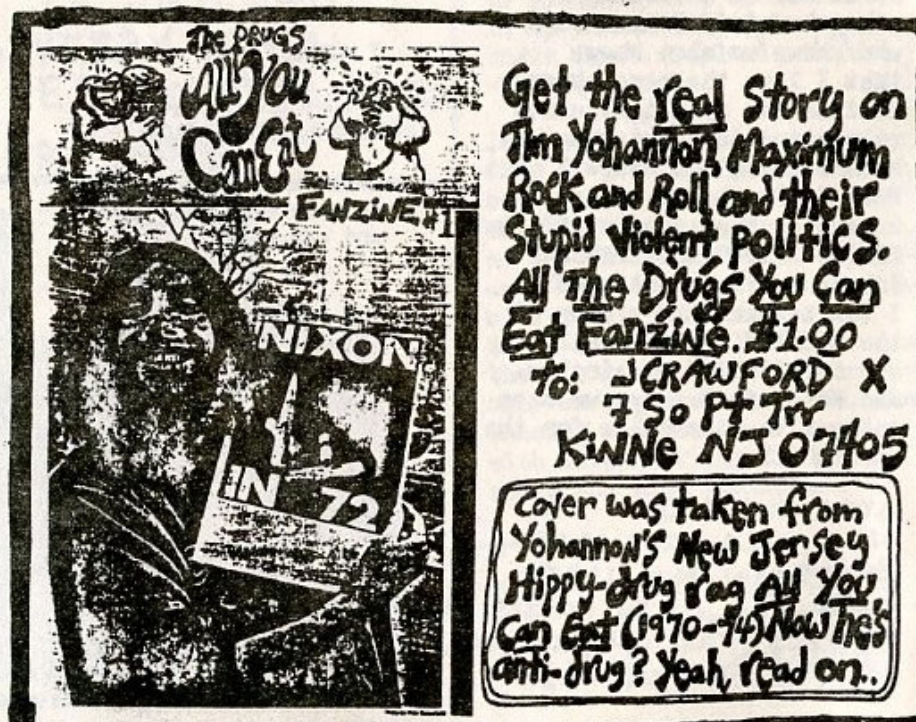 THE DRUGS
All You
Can Eat
FANZINE #1
NIXON
IN 72
Get the real Story on
Tim Yohannon, Maximum
Rock and Roll and their
Stupid violent politics.
All The Drugs You Can
Eat Fanzine. $1.00
to: J CRAWFORD X
7 So Pt Trr
KiNNe NJ 07405
Cover was taken from
Yohannon's New Jersey
Hippy-drug rag All You
Can Eat (1970-74) Now he's
anti-drug? Yeah, read on..